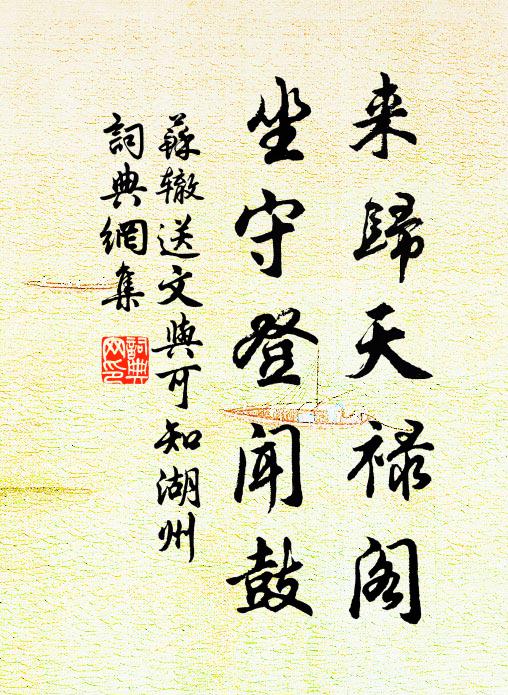 来歸天禄阁
坐守登闻鼓
蘇辙送文與可知湖州
詞典網集
詞典网印